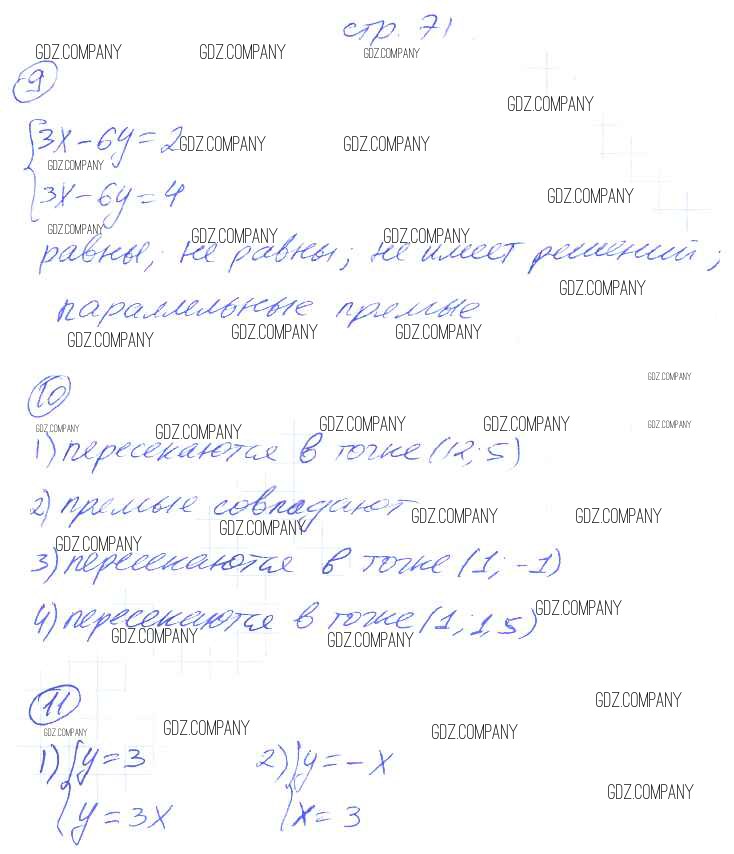 стр. 71
GDZ.COMPANY GDZ.COMPANY GDZ.COMPANY
9
GDZ.COMPANY
3x - 6y = 2 GDZ.COMPANY GDZ.COMPANY
GDZ.COMPANY
3x - 6y = 4 GDZ.COMPANY
GDZ.COMPANY GDZ.COMPANY GDZ.COMPANY
равны; не равны; не имеет решений;
GDZ.COMPANY
параллельные прямые
GDZ.COMPANY GDZ.COMPANY GDZ.COMPANY
GDZ.COMPANY
10
GDZ.COMPANY GDZ.COMPANY GDZ.COMPANY GDZ.COMPANY GDZ.COMPANY
1) пересекаются в точке (12; 5)
2) прямые совпадают
GDZ.COMPANY GDZ.COMPANY GDZ.COMPANY
GDZ.COMPANY
3) пересекаются в точке (1; -1)
4) пересекаются в точке (1; 1,5)
GDZ.COMPANY
GDZ.COMPANY GDZ.COMPANY
11
GDZ.COMPANY
GDZ.COMPANY GDZ.COMPANY GDZ.COMPANY
1) { y = 3 2) { y = - x
GDZ.COMPANY
y = 3x x = 3